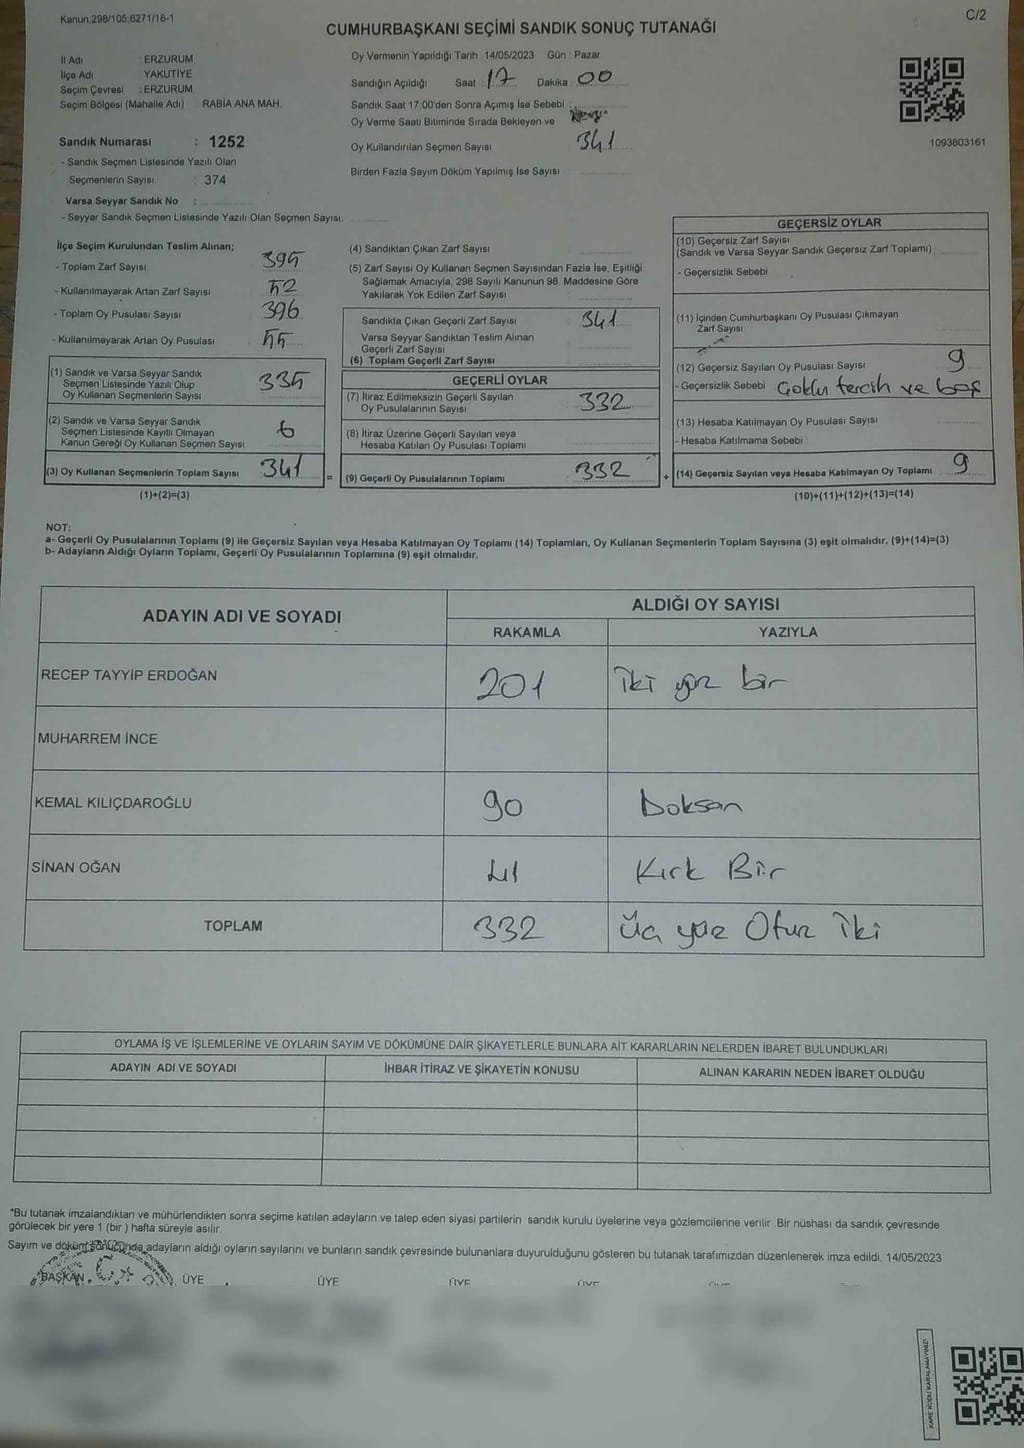 Kanun,298/105,6271/18-1
C/2
CUMHURBAŞKANI SEÇİMİ SANDIK SONUÇ TUTANAĞI
İl Adı : ERZURUM
İlçe Adı YAKUTİYE
Seçim Çevresi : ERZURUM
Seçim Bölgesi (Mahalle Adı) RABİA ANA MAH.
Oy Vermenin Yapıldığı Tarih 14/05/2023 Gün : Pazar
Sandığın Açıldığı Saat : 17 Dakika : 00
Sandık Saat 17:00'den Sonra Açımış İse Sebebi :
Oy Verme Saati Bitiminde Sırada Bekleyen ve
Oy Kullandırılan Seçmen Sayısı 341
Birden Fazla Sayım Döküm Yapılmış İse Sayısı
1093803161
Sandık Numarası : 1252
- Sandık Seçmen Listesinde Yazılı Olan
Seçmenlerin Sayısı : 374
Varsa Seyyar Sandık No :
- Seyyar Sandık Seçmen Listesinde Yazılı Olan Seçmen Sayısı:
İlçe Seçim Kurulundan Teslim Alınan;
- Toplam Zarf Sayısı 395
- Kullanılmayarak Artan Zarf Sayısı 52
- Toplam Oy Pusulası Sayısı 396
- Kullanılmayarak Artan Oy Pusulası 55
(1) Sandık ve Varsa Seyyar Sandık
Seçmen Listesinde Yazılı Olup
Oy Kullanan Seçmenlerin Sayısı 335
(2) Sandık ve Varsa Seyyar Sandık
Seçmen Listesinde Kayıtlı Olmayan
Kanun Gereği Oy Kullanan Seçmen Sayısı 6
(3) Oy Kullanan Seçmenlerin Toplam Sayısı 341
(1)+(2)=(3)
(4) Sandıktan Çıkan Zarf Sayısı
(5) Zarf Sayısı Oy Kullanan Seçmen Sayısından Fazla İse, Eşitliği
Sağlamak Amacıyla, 298 Sayılı Kanunun 98. Maddesine Göre
Yakılarak Yok Edilen Zarf Sayısı
Sandıkta Çıkan Geçerli Zarf Sayısı 341
Varsa Seyyar Sandıktan Teslim Alınan
Geçerli Zarf Sayısı
(6) Toplam Geçerli Zarf Sayısı
GEÇERLİ OYLAR
(7) İtiraz Edilmeksizin Geçerli Sayılan
Oy Pusulalarının Sayısı 332
(8) İtiraz Üzerine Geçerli Sayılan veya
Hesaba Katılan Oy Pusulası Toplamı
= (9) Geçerli Oy Pusulalarının Toplamı 332
GEÇERSİZ OYLAR
(10) Geçersiz Zarf Sayısı
(Sandık ve Varsa Seyyar Sandık Geçersiz Zarf Toplamı)
- Geçersizlik Sebebi
(11) İçinden Cumhurbaşkanı Oy Pusulası Çıkmayan
Zarf Sayısı
(12) Geçersiz Sayılan Oy Pusulası Sayısı 9
- Geçersizlik Sebebi Çoklu tercih ve boş
(13) Hesaba Katılmayan Oy Pusulası Sayısı
- Hesaba Katılmama Sebebi :
+ (14) Geçersiz Sayılan veya Hesaba Katılmayan Oy Toplamı 9
(10)+(11)+(12)+(13)=(14)
NOT:
a- Geçerli Oy Pusulalarının Toplamı (9) ile Geçersiz Sayılan veya Hesaba Katılmayan Oy Toplamı (14) Toplamları, Oy Kullanan Seçmenlerin Toplam Sayısına (3) eşit olmalıdır. (9)+(14)=(3)
b- Adayların Aldığı Oyların Toplamı, Geçerli Oy Pusulalarının Toplamına (9) eşit olmalıdır.
ADAYIN ADI VE SOYADI
ALDIĞI OY SAYISI
RAKAMLA YAZIYLA
RECEP TAYYİP ERDOĞAN 201 İki yüz bir
MUHARREM İNCE
KEMAL KILIÇDAROĞLU 90 Doksan
SİNAN OĞAN 41 Kırk Bir
TOPLAM 332 Üç yüz Otuz İki
OYLAMA İŞ VE İŞLEMLERİNE VE OYLARIN SAYIM VE DÖKÜMÜNE DAİR ŞİKAYETLERLE BUNLARA AİT KARARLARIN NELERDEN İBARET BULUNDUKLARI
ADAYIN ADI VE SOYADI İHBAR İTİRAZ VE ŞİKAYETİN KONUSU ALINAN KARARIN NEDEN İBARET OLDUĞU
*Bu tutanak imzalandıktan ve mühürlendikten sonra seçime katılan adayların ve talep eden siyasi partilerin sandık kurulu üyelerine veya gözlemcilerine verilir. Bir nüshası da sandık çevresinde
görülecek bir yere 1 (bir ) hafta süreyle asılır.
Sayım ve döküm sonucunda adayların aldığı oyların sayılarını ve bunların sandık çevresinde bulunanlara duyurulduğunu gösteren bu tutanak tarafımızdan düzenlenerek imza edildi. 14/05/2023
BAŞKAN ÜYE ÜYE ÜYE ÜYE
KARE KODU KARALAMAYINIZ!